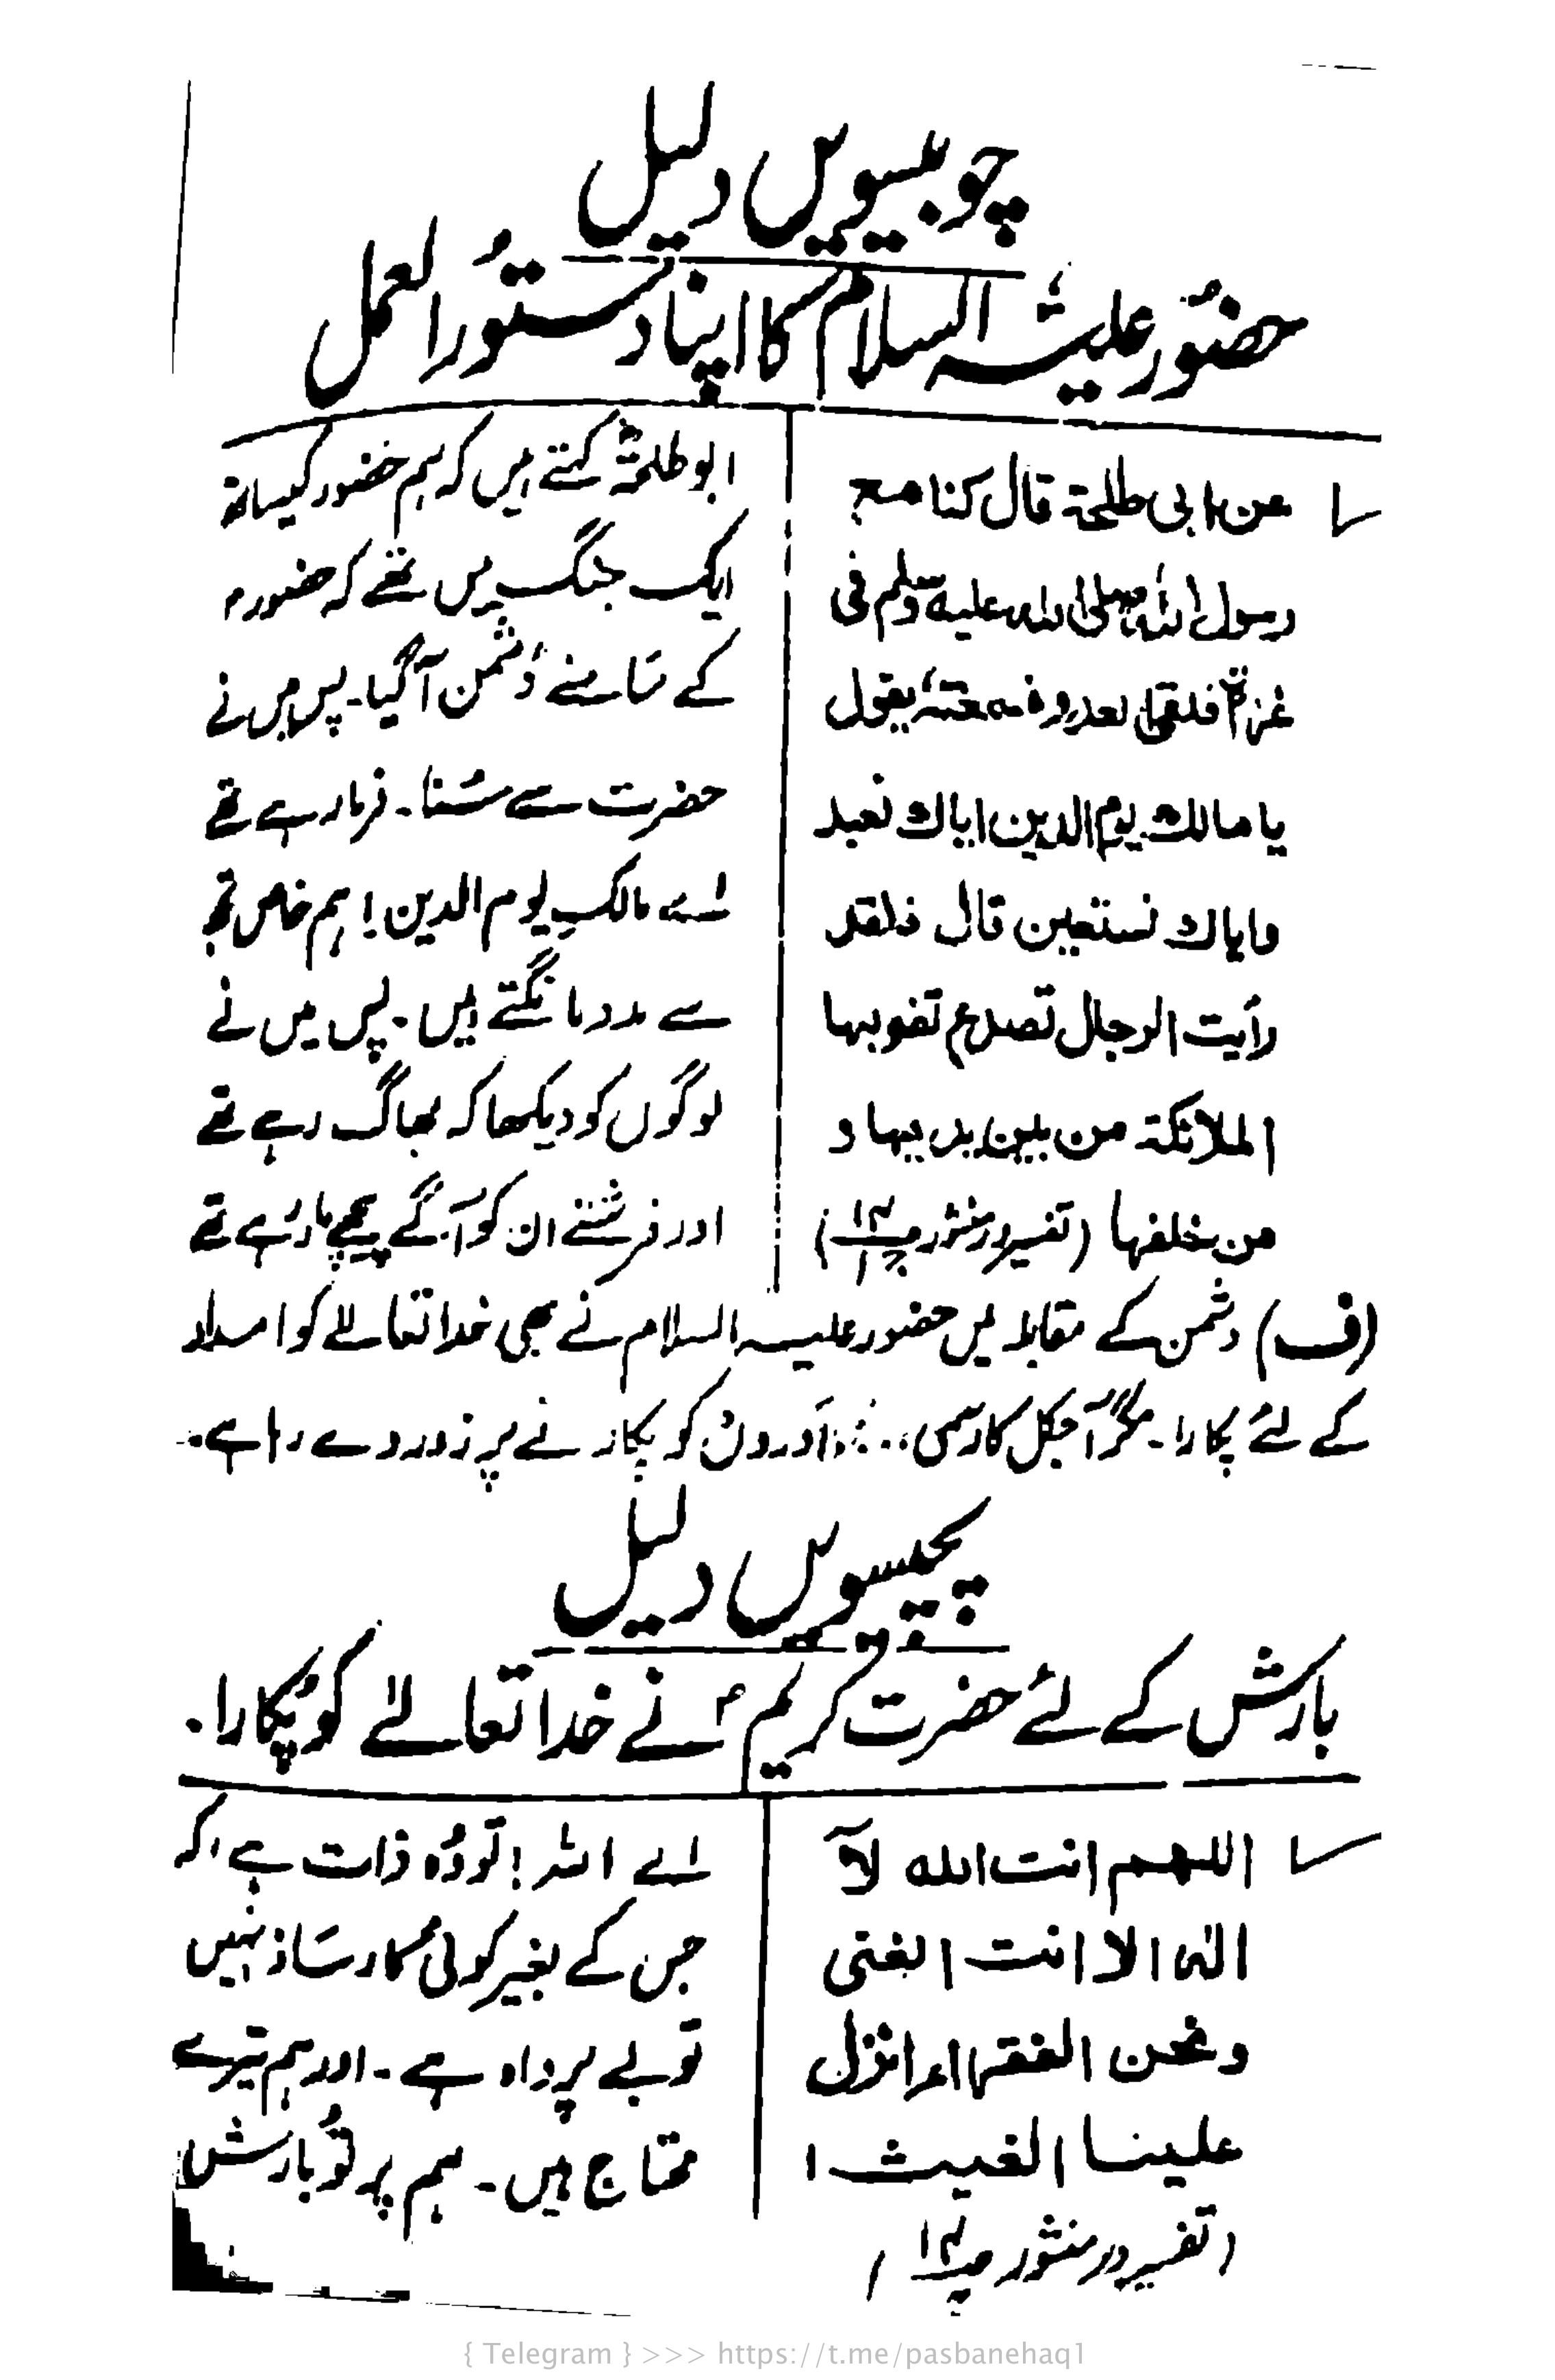 چوبیسویں دلیل
حضور علیہ السلام کا اپنا دستور العمل
عن ابی طلحۃ قال کنا مع
رسول اللہ صلی اللہ علیہ وسلم فی
غزاۃ فلقی العدو فسمعتہ یقول
یا مالک یوم الدین ایاک نعبد
وایاک نستعین قال فلقد
رأیت الرجال تصرع تضربہا
الملائکۃ من بین یدیہا و
من خلفہا (تفسیر درمنثور
ابو طلحہؓ کہتے ہیں کہ ہم حضور کیساتھ
ایک جنگ میں تھے کہ حضورؐ
کے سامنے دُشمن آگیا۔ پس میں نے
حضرت سے سُنا۔ فرما رہے تھے
اے مالکِ یوم الدین! ہم خاص تجھ
سے مدد مانگتے ہیں۔ پس میں نے
لوگوں کو دیکھا کہ بھاگ رہے تھے
اور فرشتے ان کو آگے پیچھے مار رہے تھے
(ف) دشمن کے مقابلہ میں حضور علیہ السلام نے بھی خدا تعالےٰ کو امداد
کے لئے پکارا۔ مگر آجکل کا رسمی اَوروں کو پکارنے پر زور دے رہا ہے۔
پچیسویں دلیل
بارش کے لئے حضرت کریمؐ نے خدا تعالےٰ کو پُکارا۔
اللہم انت اللہ لآ
الٰہ الا انت الغنی
ونحن الفقراء انزل
علینا الغیث ا
(تفسیر درمنثور
اے اللہ! تو وُہ ذات ہے کہ
جس کے بغیر کوئی کارساز نہیں
تو بے پرواہ ہے۔ اور ہم تیرے
محتاج ہیں۔ ہم پر تُو بارش
{ Telegram } >>> https://t.me/pasbanehaq1